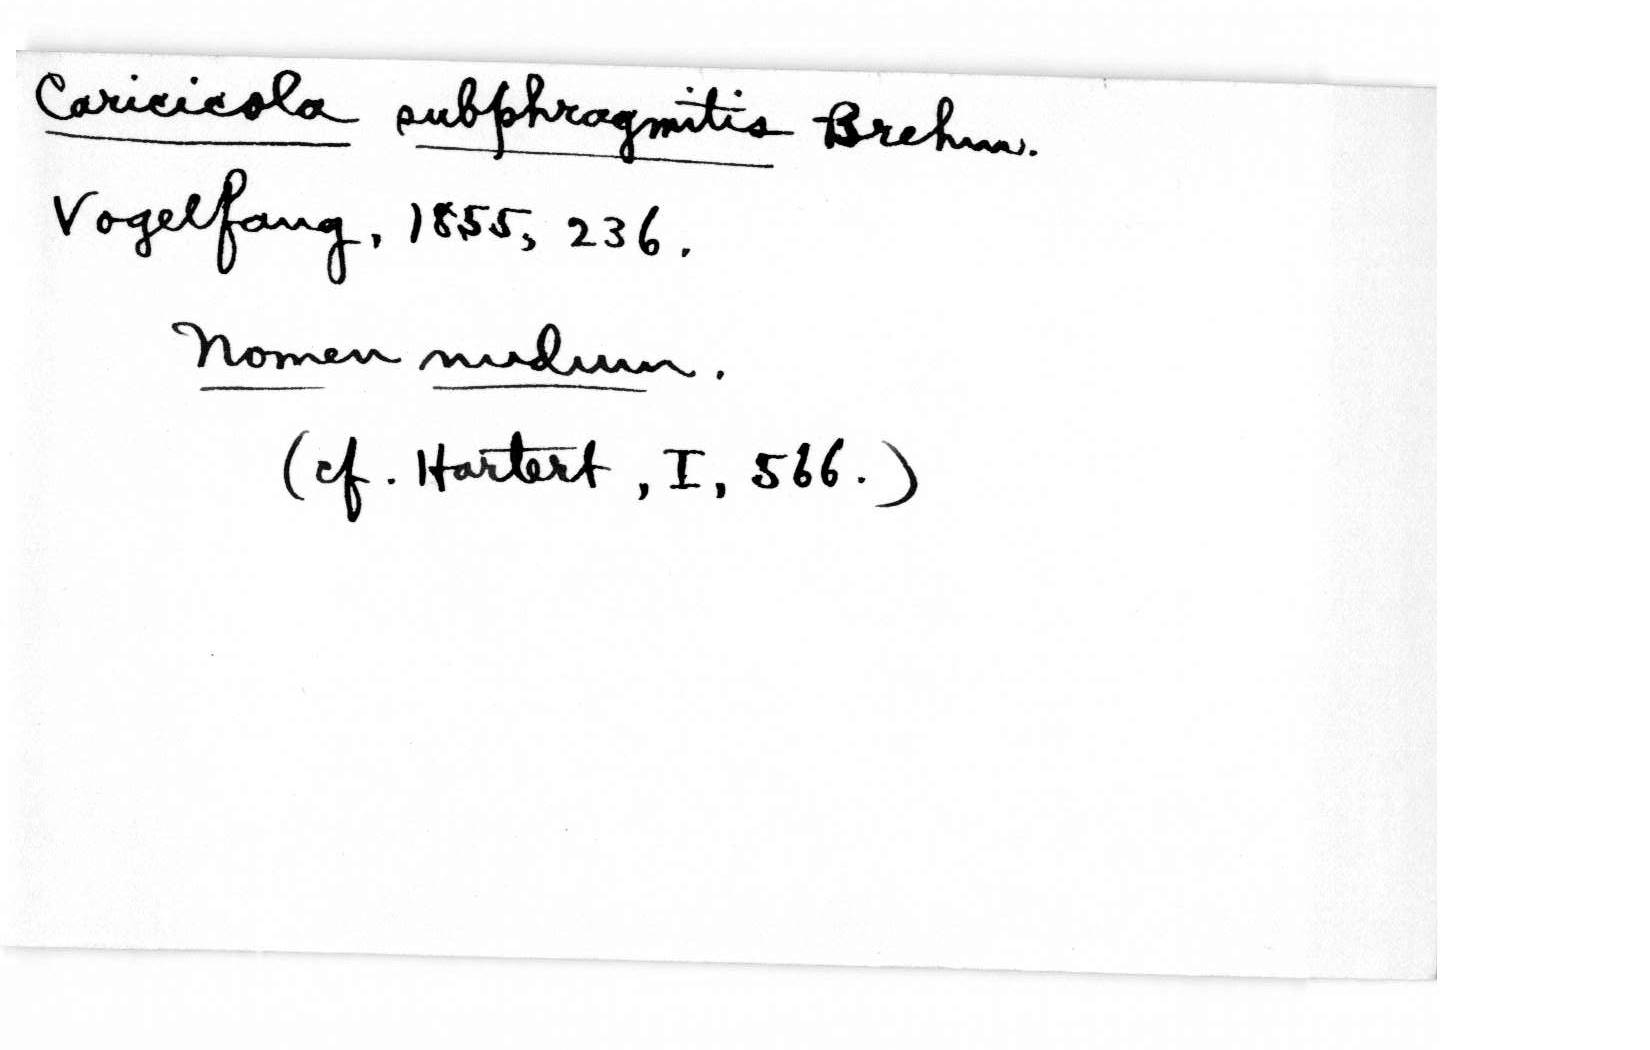 Caricicola subphragmitis Brehm.
Vogelfang, 1855, 236.
Nomen nudum.
(cf. Hartert, I, 566.)